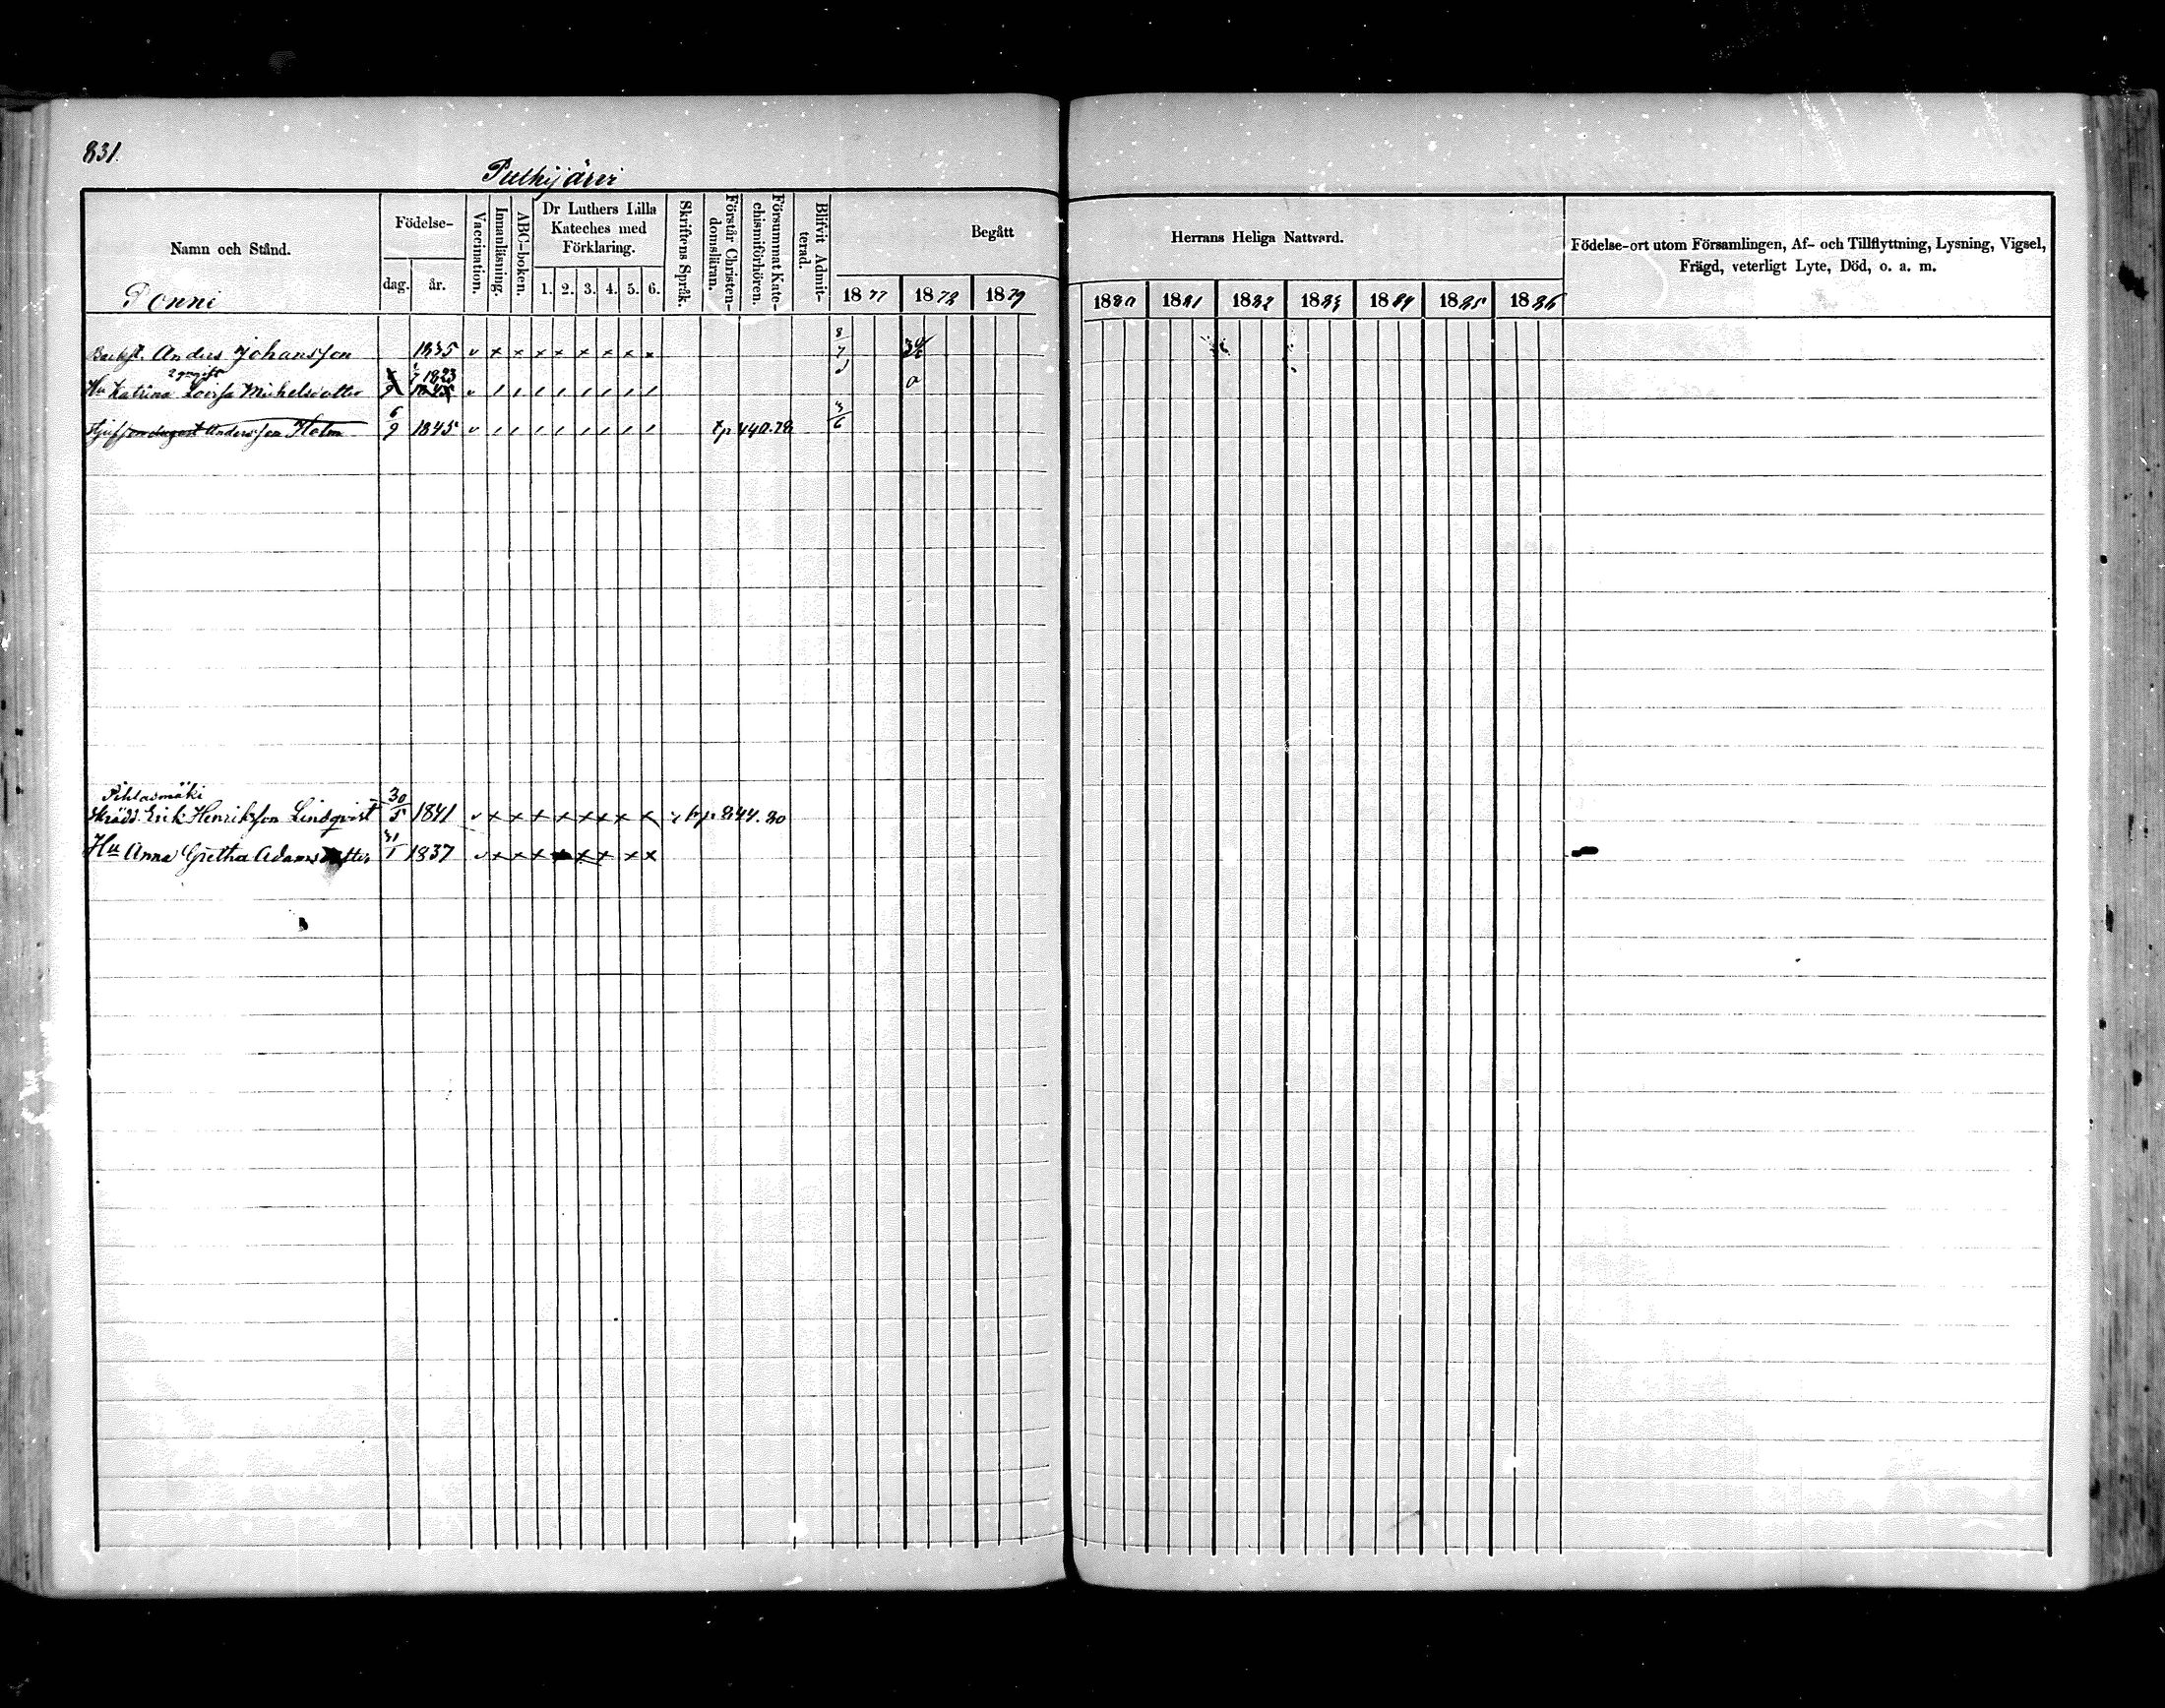 831.
Puthijärvi
Namn och Stånd.
Födelse-
dag.
år.
Vaccination.
Innanläsning.
ABC-boken.
Dr Luthers Lilla
Kateches med
Förklaring.
1. 2. 3. 4. 5. 6.
Skriftens Språk.
Förstår Christen-
domsläran.
Försummat Kate-
chismiförhören.
Blifvit Admit-
terad.
Begått
1877 1878 1879
Herrans Heliga Nattvard.
1880 1881 1882 1883 1884 1885 1886
Födelse-ort utom Församlingen, Af- och Tillflyttning, Lysning, Vigsel,
Frägd, veterligt Lyte, Död, o. a. m.
Ponni
Anders Johansson 1835 v x x x x x x x x 8/7
2 gng gift 1823
Hu Katrina Lovisa Michelsdotter 9 1845 v / / / / / / / / a
August Andersson Holm 6/9 1845 v / / / / / / / / tp 440.78 3/6
Pihlasmäki
Skrädd. Erik Henriksson Lindqvist 30/5 1841 v x x x x x x x x p. 844. 80
Hu Anna Gretha Adamsdotter 31/1 1837 v x x x x x x x